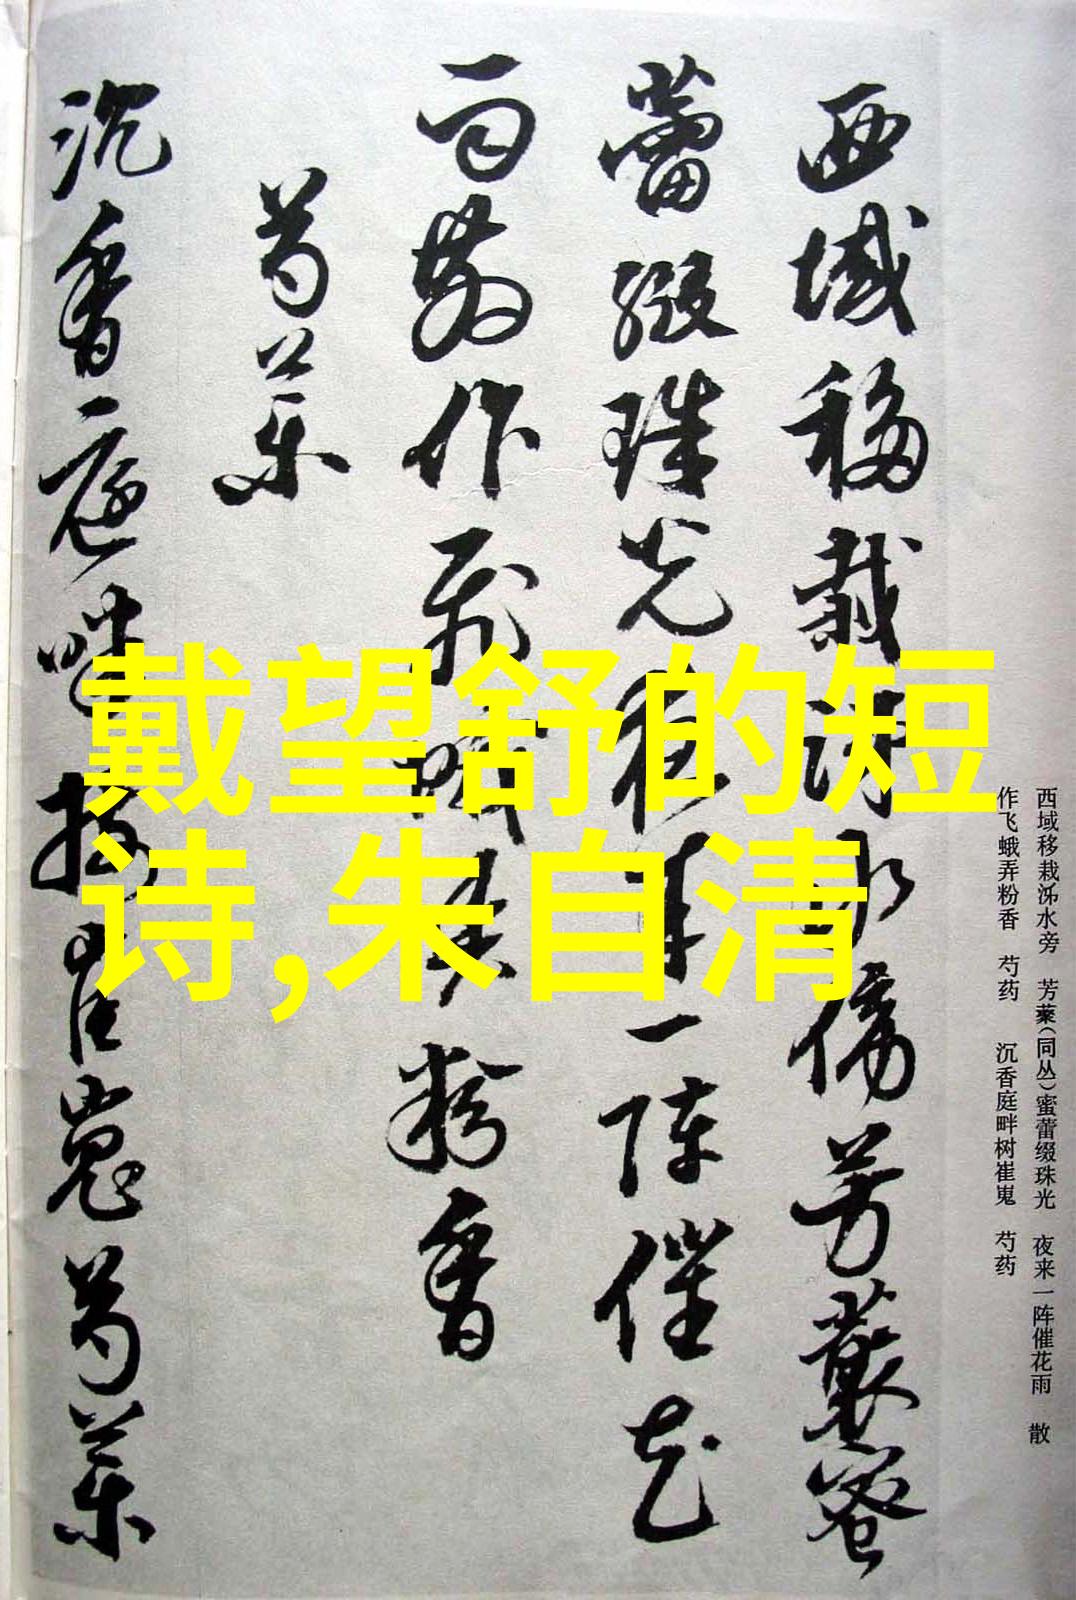 西域移栽水旁 芳藂(同丛)蜜蕾缀珠光 夜来一阵催花雨 散
作飞蛾弄粉香 芍药 沉香庭畔树崔嵬 芍药
西域移栽水傍芳藂蜜
蕾缀珠光夜来一阵催花
雨散作飞蛾弄粉香
芍药
沉香庭畔树崔嵬芍药
戴望舒的短
诗,朱自清